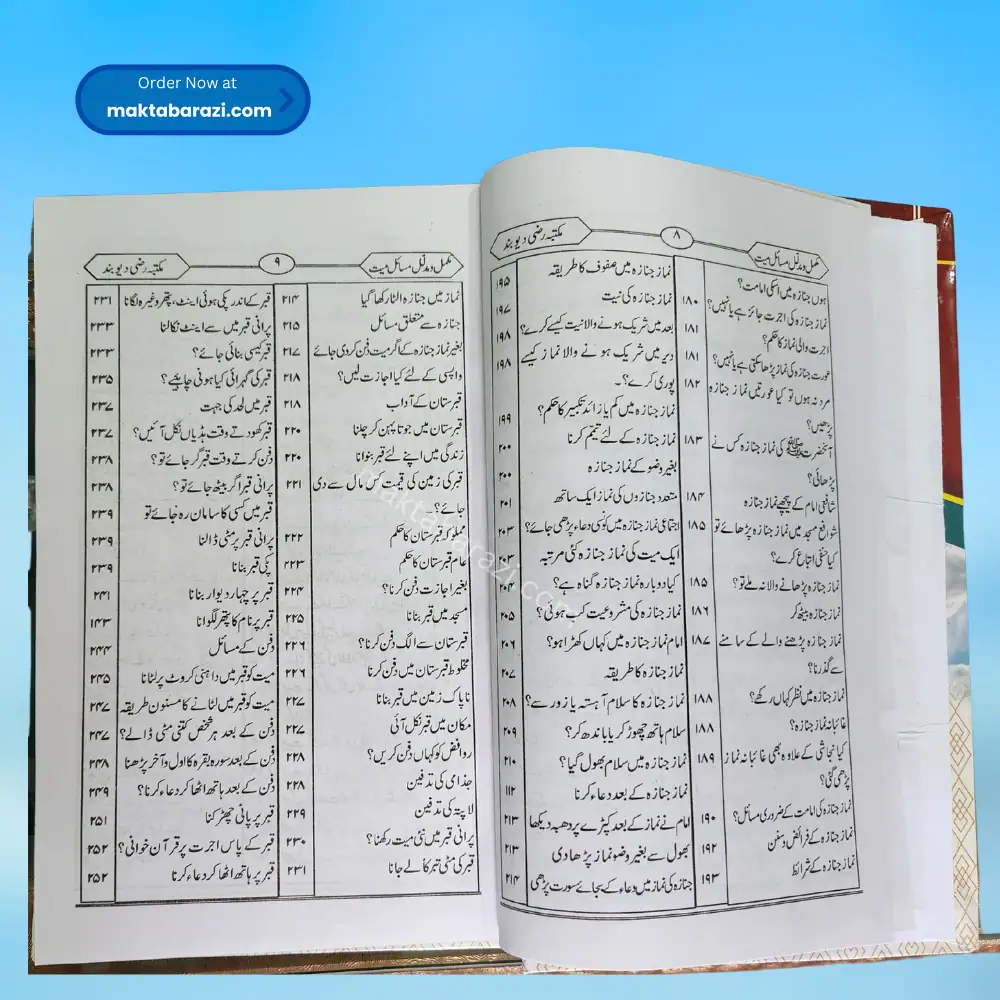 Order Now at
maktabarazi.com
مکمل و مدلل مسائل میت
۸
مکتبہ رضی دیوبند
ہوں جنازہ میں اسکی امامت؟
نماز جنازہ کی اجرت جائز ہے یا نہیں؟ ۱۸۰
اجرت والی نماز کا حکم؟ ۱۸۱
عورت جنازہ کی نماز پڑھا سکتی ہے یا نہیں؟ ۱۸۱
مرد نہ ہوں تو کیا عورتیں نماز جنازہ ۱۸۲
پڑھیں؟
آنحضرت ﷺ کی نماز جنازہ کس نے ۱۸۳
پڑھائی؟
شافعی امام کے پیچھے نماز جنازہ ۱۸۴
شوافع مسجد میں نماز جنازہ پڑھائے تو ۱۸۵
کیا حنفی اتباع کرے؟
نماز جنازہ پڑھانے والا نہ ملے تو؟ ۱۸۵
نماز جنازہ بیٹھ کر ۱۸۶
نماز جنازہ پڑھنے والے کے سامنے ۱۸۷
سے گذرنا؟
نماز جنازہ میں نظر کہاں رکھے؟ ۱۸۸
غائبانہ نماز جنازہ؟ ۱۸۸
کیا نجاشی کے علاوہ بھی غائبانہ نماز ۱۸۹
پڑھی گئی؟
نماز جنازہ کی امامت کے ضروری مسائل؟ ۱۹۰
نماز جنازہ کے فرائض و سنن ۱۹۲
نماز جنازہ کے شرائط ۱۹۳
نماز جنازہ میں صفوف کا طریقہ ۱۹۵
نماز جنازہ کی نیت ۱۹۷
بعد میں شریک ہونے والا نیت کیسے کرے؟ ۱۹۸
دیر میں شریک ہونے والا نماز کیسے ۱۹۸
پوری کرے؟۔
نماز جنازہ میں کم یا زائد تکبیر کا حکم؟ ۱۹۹
نماز جنازہ کے لئے تیمم کرنا ۲۰۰
بغیر وضو کے نماز جنازہ ۲۰۰
متعدد جنازوں کی نماز ایک ساتھ ۲۰۱
اجتماعی نماز جنازہ میں کونسی دعاء پڑھی جائے؟ ۲۰۳
ایک میت کی نماز جنازہ کئی مرتبہ ۲۰۳
کیا دوبارہ نماز جنازہ گناہ ہے؟ ۲۰۴
نماز جنازہ کی مشروعیت کب ہوئی؟ ۲۰۵
امام نماز جنازہ میں کہاں کھڑا ہو؟ ۲۰۶
نماز جنازہ کا طریقہ ۲۰۷
نماز جنازہ کا سلام آہستہ یا زور سے؟ ۲۰۸
سلام ہاتھ چھوڑ کر یا باندھ کر؟ ۲۰۹
نماز جنازہ میں سلام بھول گیا؟ ۲۱۰
نماز جنازہ کے بعد دعاء کرنا ۱۱۲
امام نے نماز کے بعد کپڑے پر دھبہ دیکھا ۲۱۳
بھول سے بغیر وضو نماز پڑھادی ۲۱۳
جنازہ کی نماز میں دعاء کے بجائے سورت پڑھی ۲۱۴
مکمل و مدلل مسائل میت
۹
مکتبہ رضی دیوبند
نماز میں جنازہ الٹا رکھا گیا ۲۱۴
جنازہ سے متعلق مسائل ۲۱۵
بغیر نماز جنازہ کے اگر میت دفن کردی جائے ۲۱۷
واپسی کے لئے کیا اجازت لیں؟ ۲۱۸
قبرستان کے آداب ۲۱۸
قبرستان میں جوتا پہن کر چلنا ۲۲۰
زندگی میں اپنے لئے قبر بنوانا ۲۲۰
قبر کی زمین کی قیمت کس مال سے دی ۲۲۱
جائے؟
مملوکہ قبرستان کا حکم ۲۲۲
عام قبرستان کا حکم ۲۲۳
بغیر اجازت دفن کرنا؟ ۲۲۴
مسجد میں قبر بنانا ۲۲۵
قبرستان سے الگ دفن کرنا؟ ۲۲۶
مخلوط قبرستان میں دفن کرنا ۲۲۶
ناپاک زمین میں قبر بنانا ۲۲۷
مکان میں قبر نکل آئی ۲۲۷
روافض کو کہاں دفن کریں؟ ۲۲۸
جذامی کی تدفین ۲۲۸
لاپتہ کی تدفین ۲۲۹
پرانی قبر میں نئی میت رکھنا؟ ۲۳۰
قبر کی مٹی تبرکا لے جانا ۲۳۱
قبر کے اندر پکی ہوئی اینٹ، پتھر وغیرہ لگانا ۲۳۱
پرانی قبر میں سے اینٹ نکالنا ۲۳۳
قبر کیسی بنائی جائے؟ ۲۳۳
قبر کی گہرائی کیا ہونی چاہیئے؟ ۲۳۵
قبر میں لحد کی جہت ۲۳۷
قبر کھودتے وقت ہڈیاں نکل آئیں؟ ۲۳۷
دفن کرتے وقت قبر گر جائے تو؟ ۲۳۸
پرانی قبر اگر بیٹھ جائے تو؟ ۲۳۸
قبر میں کسی کا سامان رہ جائے تو ۲۳۹
پرانی قبر پر مٹی ڈالنا ۲۳۹
پکی قبر بنانا ۲۳۹
قبر پر چہار دیوار بنانا ۲۴۱
قبر پر نام کا پتھر لگوانا ۱۴۳
دفن کے مسائل ۲۴۴
میت کو قبر میں داہنی کروٹ پر لٹانا ۲۴۵
میت کو قبر میں لٹانے کا مسنون طریقہ ۲۴۷
دفن کے بعد ہر شخص کتنی مٹی ڈالے؟ ۲۴۷
دفن کے بعد سورہ بقرہ کا اول و آخر پڑھنا ۲۴۸
دفن کے بعد ہاتھ اٹھا کر دعاء کرنا؟ ۲۴۹
قبر پر پانی چھڑکنا ۲۵۱
قبر کے پاس اجرت پر قرآن خوانی؟ ۲۵۲
قبر پر ہاتھ اٹھا کر دعاء کرنا ۲۵۲
maktabarazi.com